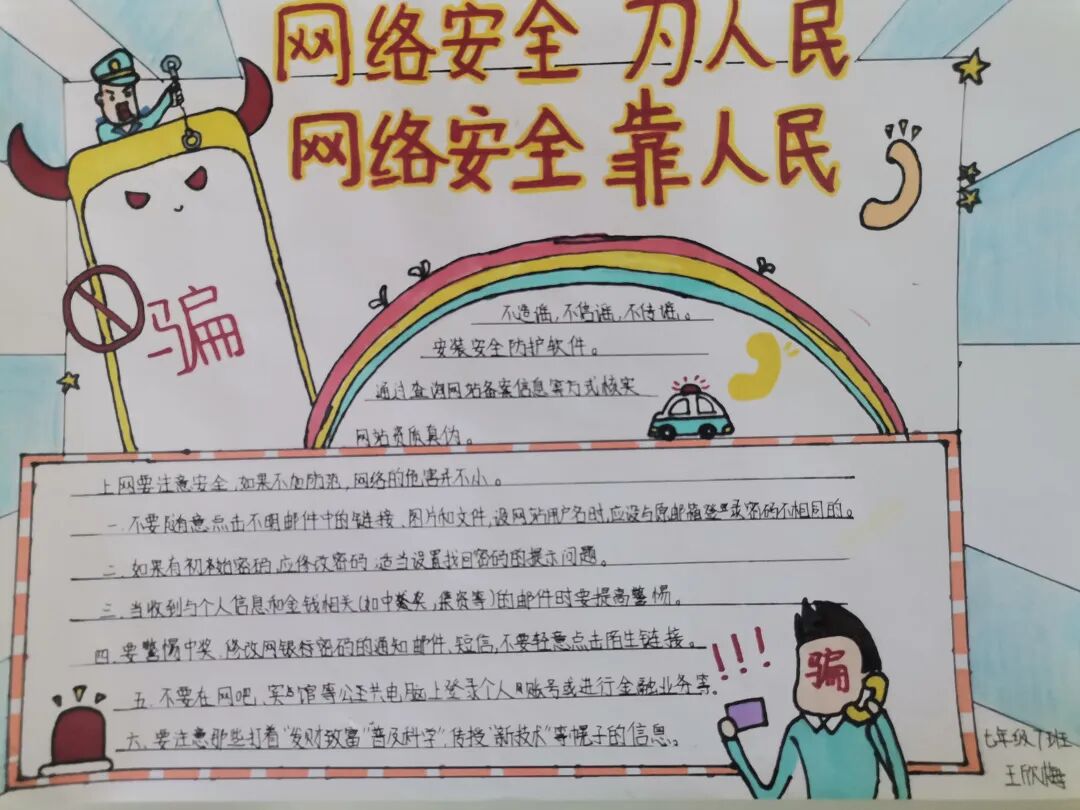 网络安全 为人民
网络安全 靠人民
骗
不造谣,不信谣,不传谣。
安装安全防护软件。
通过查询网站备案信息等方式核实
网站资质真伪。
上网要注意安全,如果不加防范,网络的危害并不小。
一.不要随意点击不明邮件中的链接、图片和文件,设网站用户名时,应设与原邮箱登录密码不相同的。
二.如果有初始密码,应修改密码,适当设置找回密码的提示问题。
三.当收到与个人信息和金钱相关(如中奖,集资等)的邮件时要提高警惕。
四.要警惕中奖、修改网银密码的通知邮件、短信,不要轻意点击陌生链接。
五.不要在网吧,宾馆等公共电脑上登录个人账号或进行金融业务等。
六.要注意那些打着“发财致富”“普及科学”,传授“新技术”等幌子的信息。
!!!
骗
七年级7班
王欣梅